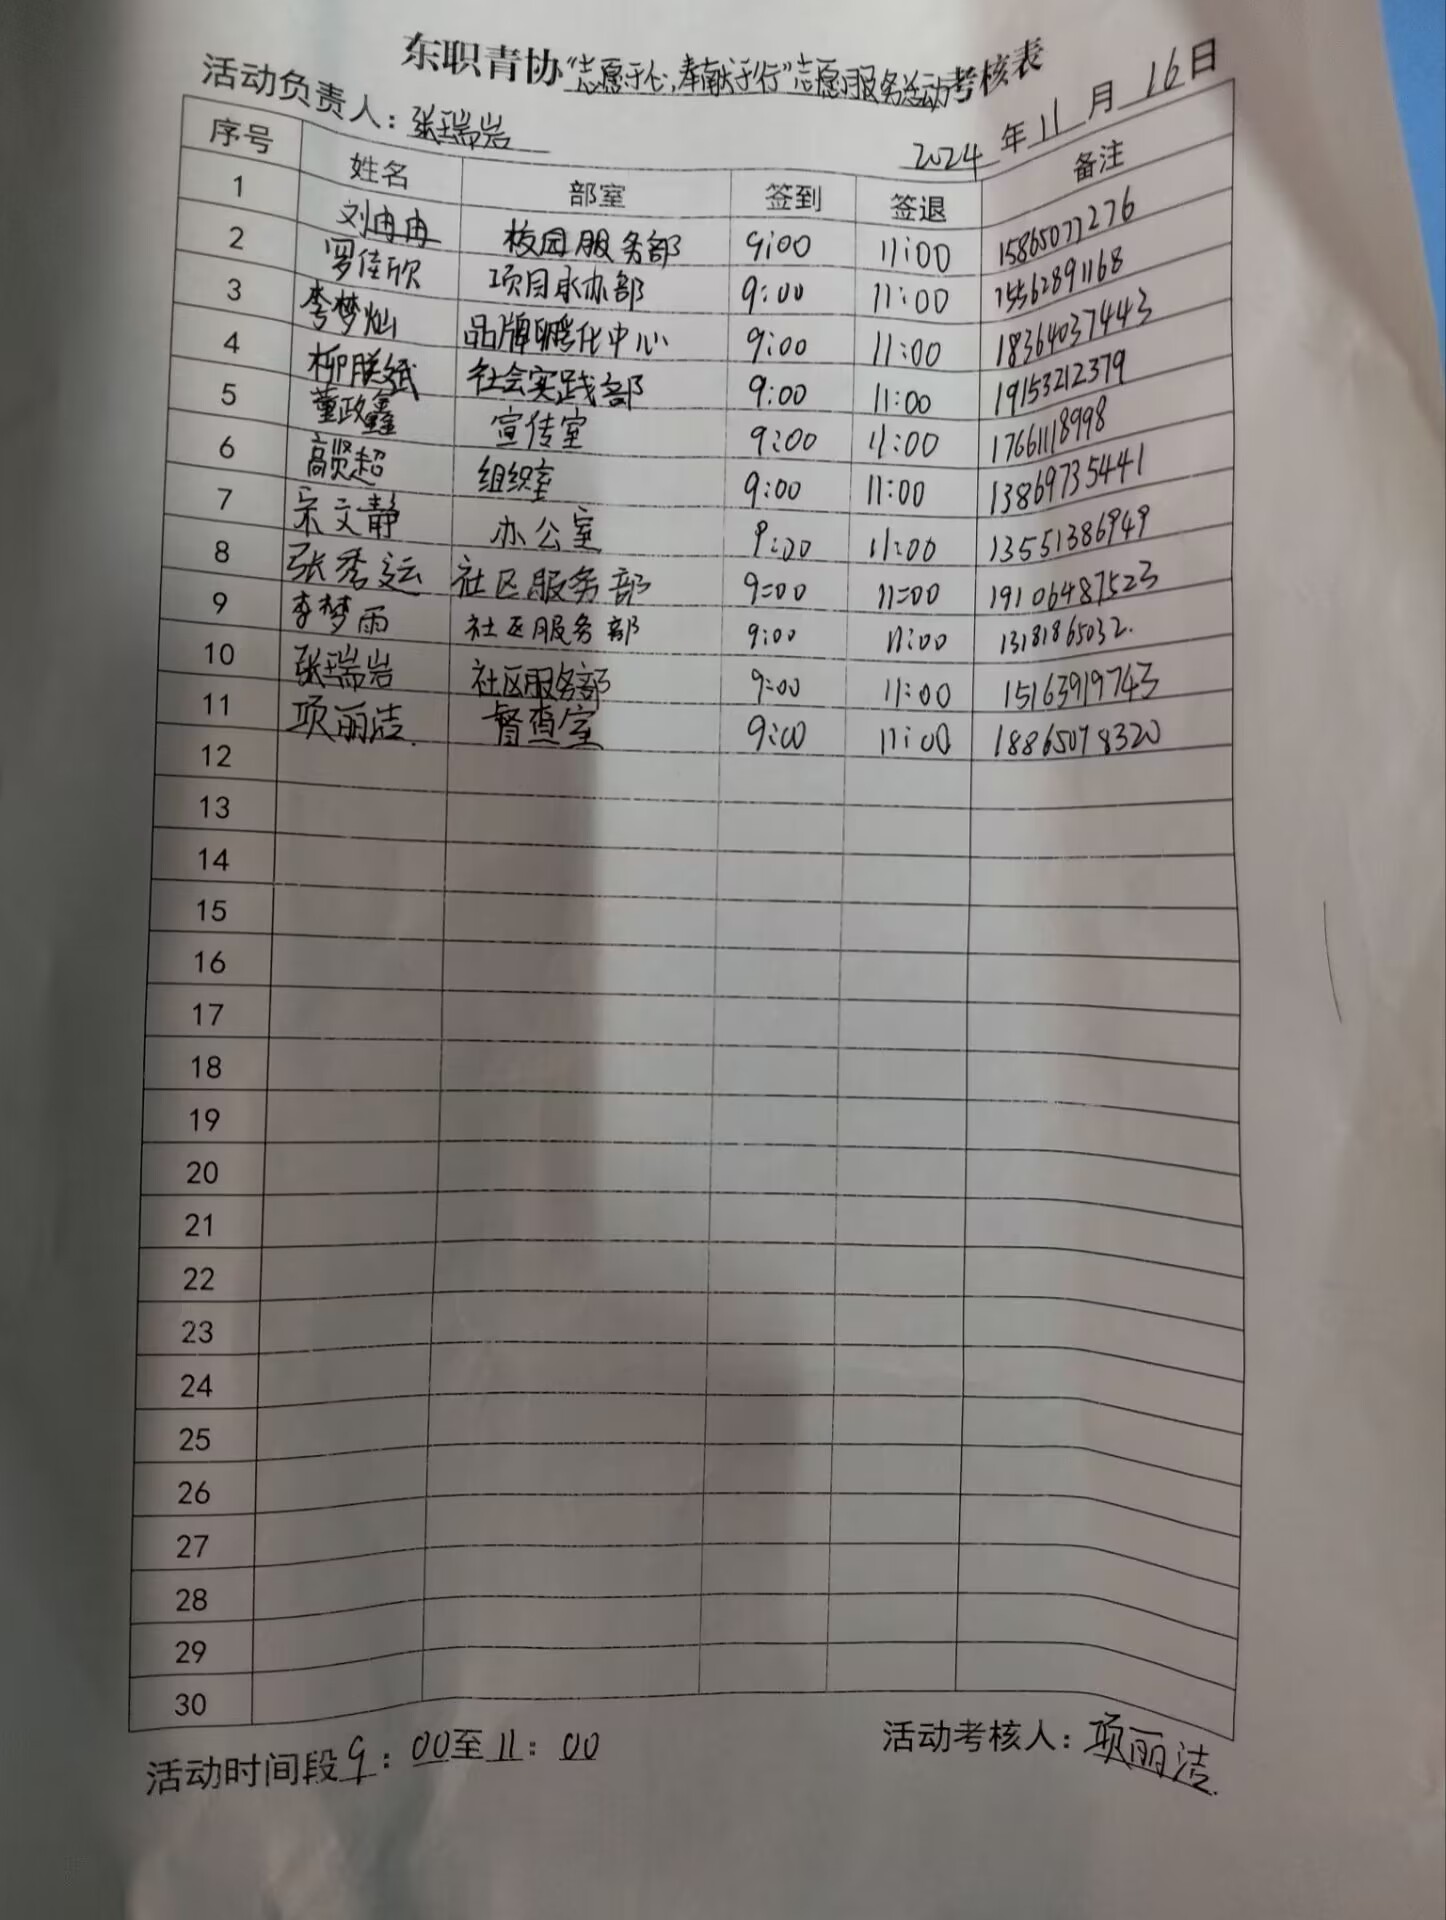 东职青协“志愿于心,奉献于行”志愿服务活动考核表
活动负责人：张瑞岩 2024年11月16日
序号 姓名 部室 签到 签退 备注
1 刘冉冉 校园服务部 9:00 11:00 15865077276
2 罗佳欣 项目承办部 9:00 11:00 15562891168
3 李梦灿 品牌孵化中心 9:00 11:00 18364037443
4 柳朕斌 社会实践部 9:00 11:00 19153212379
5 董政鑫 宣传室 9:00 11:00 17661118998
6 高贤超 组织室 9:00 11:00 13869735441
7 宋文静 办公室 9:00 11:00 13551386949
8 张秀运 社区服务部 9:00 11:00 19106487523
9 李梦雨 社区服务部 9:00 11:00 13181865032.
10 张瑞岩 社区服务部 9:00 11:00 15163919743
11 项丽洁. 督查室 9:00 11:00 18865078320
12
13
14
15
16
17
18
19
20
21
22
23
24
25
26
27
28
29
30
活动时间段9：00至11：00 活动考核人：项丽洁.